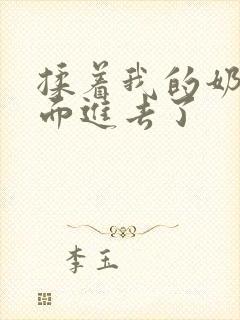 揉着我的奶
而进去了
李玉